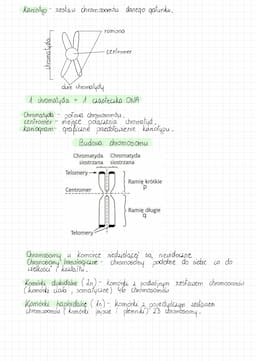 Kariotyp - zestaw chromosomów danego gatunku.
chromatyda
ramiona
centromer
dwie chromatydy
1 chromatyda = 1 cząsteczka DNA
Chromatyda - połowa chromosomu.
centromer - miejsce połączenia chromatyd.
kariogram - graficzne przedstawienie kariotypu.
Budowa chromosomu
Chromatyda siostrzana
Chromatyda siostrzana
Telomery
Ramię krótkie
p
Centromer
Ramię długie
q
Telomery
Chromosomy w komórce niedzielącej są niewidoczne.
Chromosomy homologiczne - chromosomy podobne do siebie co do
wielkości i kształtu.
Komórki diploidalne (2n) - komórki z podwójnym zestawem chromosomów
(komórki ciała, somatyczne) 46 chromosomów
Komórki haploidalne (n) - komórki z pojedynczym zestawem
chromosomów (komórki jajowe i plemniki) 23 chromosomy.